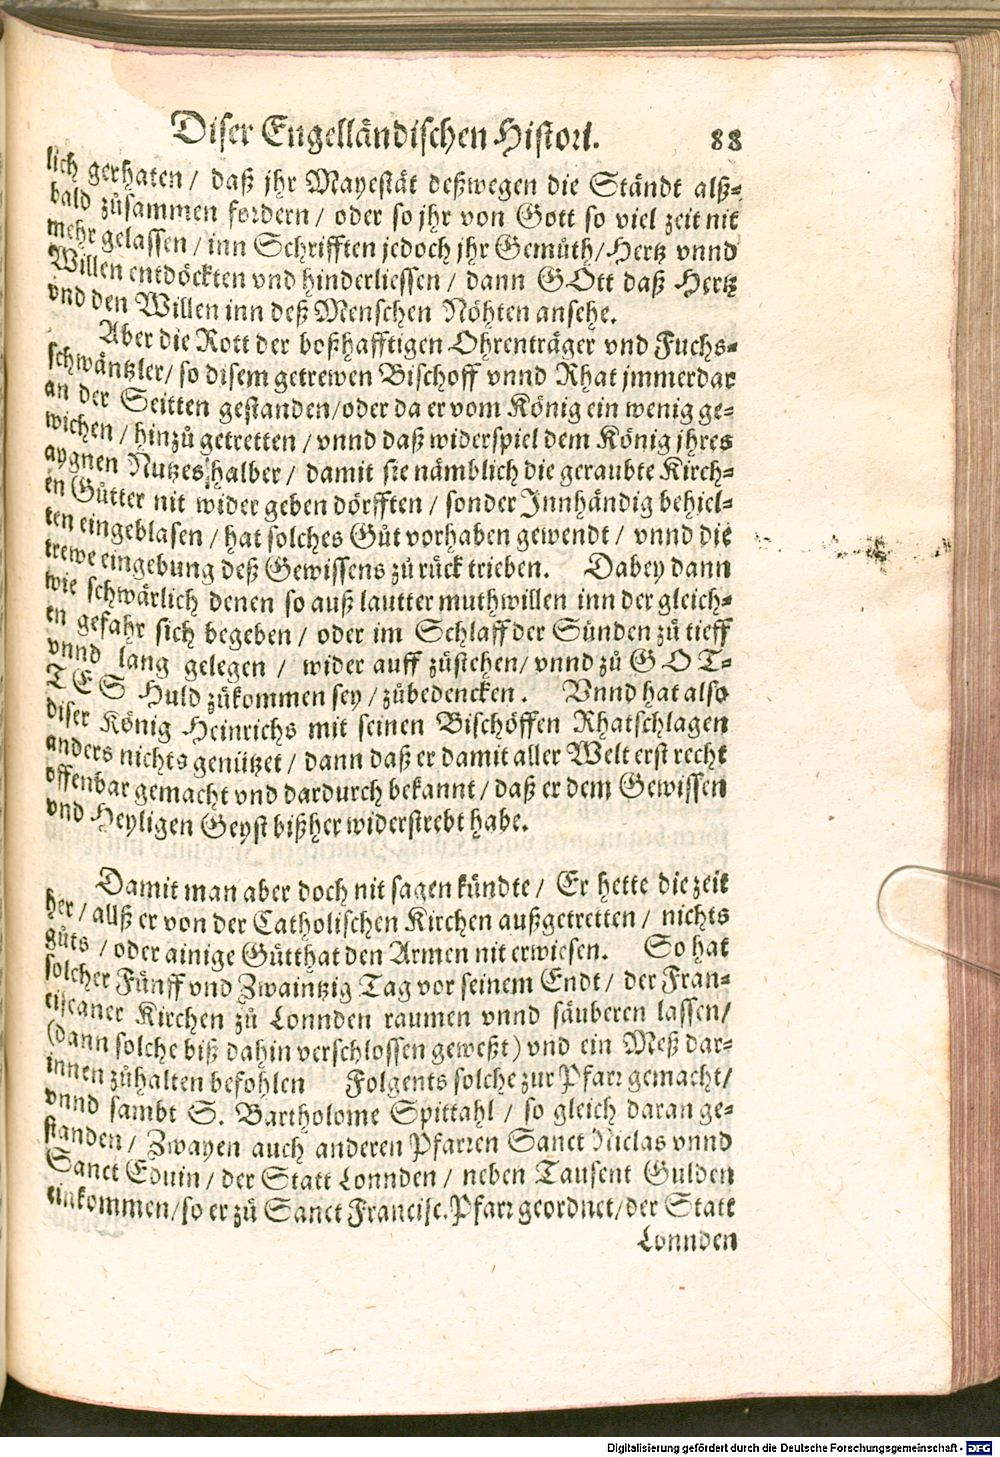 Diser Engelländischen Histori. 88
lich gerhaten / daß jhr Mayestät deßwegen die Ständt alß⸗
bald zůsammen fordern / oder so jhr von Gott so viel zeit nit
mehr gelassen / inn Schrifften jedoch jhr Gemüth / Hertz vnnd
Willen entdöckten vnd hinderliessen / dann GOtt daß Hertz
vnd den Willen inn deß Menschen Nöhten ansehe.
Aber die Rott der boßhafftigen Ohrenträger vnd Fuchs⸗
schwäntzler / so disem getrewen Bischoff vnnd Rhat jmmerdar
an der Seitten gestanden / oder da er vom König ein wenig ge⸗
wichen / hinzů getretten / vnnd daß widerspiel dem König jhres
aygnen Nutzes halber / damit sie nämblich die geraubte Kirch⸗
en Gůtter nit wider geben dörfften / sonder Innhändig behiel⸗
ten eingeblasen / hat solches Gůt vorhaben gewendt / vnnd die
trewe eingebung deß Gewissens zů rück trieben. Dabey dann
wie schwärlich denen so auß lautter muthwillen inn der gleich⸗
en gefahr sich begeben / oder im Schlaff der Sünden zů tieff
vnnd lang gelegen / wider auff zůstehen / vnnd zů GOT⸗
TES Huld zůkommen sey / zůbedencken. Vnnd hat also
diser König Heinrichs mit seinen Bischöffen Rhatschlagen
anders nichts genützet / dann daß er damit aller Welt erst recht
offenbar gemacht vnd dardurch bekannt / daß er dem Gewissen
vnd Heyligen Geyst bißher widerstrebt habe.
Damit man aber doch nit sagen kündte / Er hette die zeit
her / allß er von der Catholischen Kirchen außgetretten / nichts
gůts / oder ainige Gůtthat den Armen nit erwiesen. So hat
solcher Fünff vnd Zwaintzig Tag vor seinem Endt / der Fran⸗
ciscaner Kirchen zů Lonnden raumen vnnd säuberen lassen /
(dann solche biß dahin verschlossen geweßt) vnd ein Meß dar⸗
innen zůhalten befohlen Folgents solche zur Pfarr gemacht /
vnnd sambt S. Bartholome Spittahl / so gleich daran ge⸗
standen / Zwayen auch anderen Pfarren Sanct Niclas vnnd
Sanct Eduin / der Statt Lonnden / neben Tausent Gulden
einkommen / so er zů Sanct Francisc. Pfarr geordnet / der Statt
Lonnden
Digitalisierung gefördert durch die Deutsche Forschungsgemeinschaft - DFG